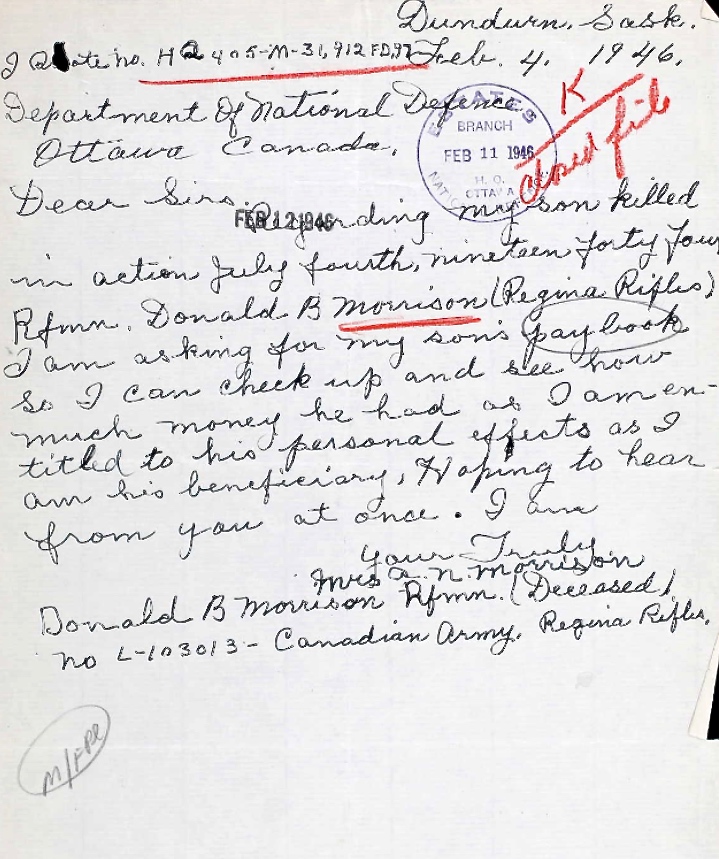 Dundurn, Sask.
I Quote no. HQ 405-M-31,912 FD,97 Feb. 4, 1946.
K
closed file
Department Of National Defence
Ottawa Canada,
ESTATES
BRANCH
FEB 11 1946
H. Q.
OTTAWA
Dear Sirs. Regarding my son killed
FEB 12 1946
in action July fourth, nineteen forty four
Rfmn. Donald B Morrison (Regina Rifles)
I am asking for my sons paybook
so I can check up and see how
much money he had as I am en-
titled to his personal effects as I
am his beneficiary, Hoping to hear
from you at once. I am
Your Truly
Mrs A. N. Morrison
Donald B Morrison Rfmn. (Deceased)
no L-103013 - Canadian Army. Regina Rifles.